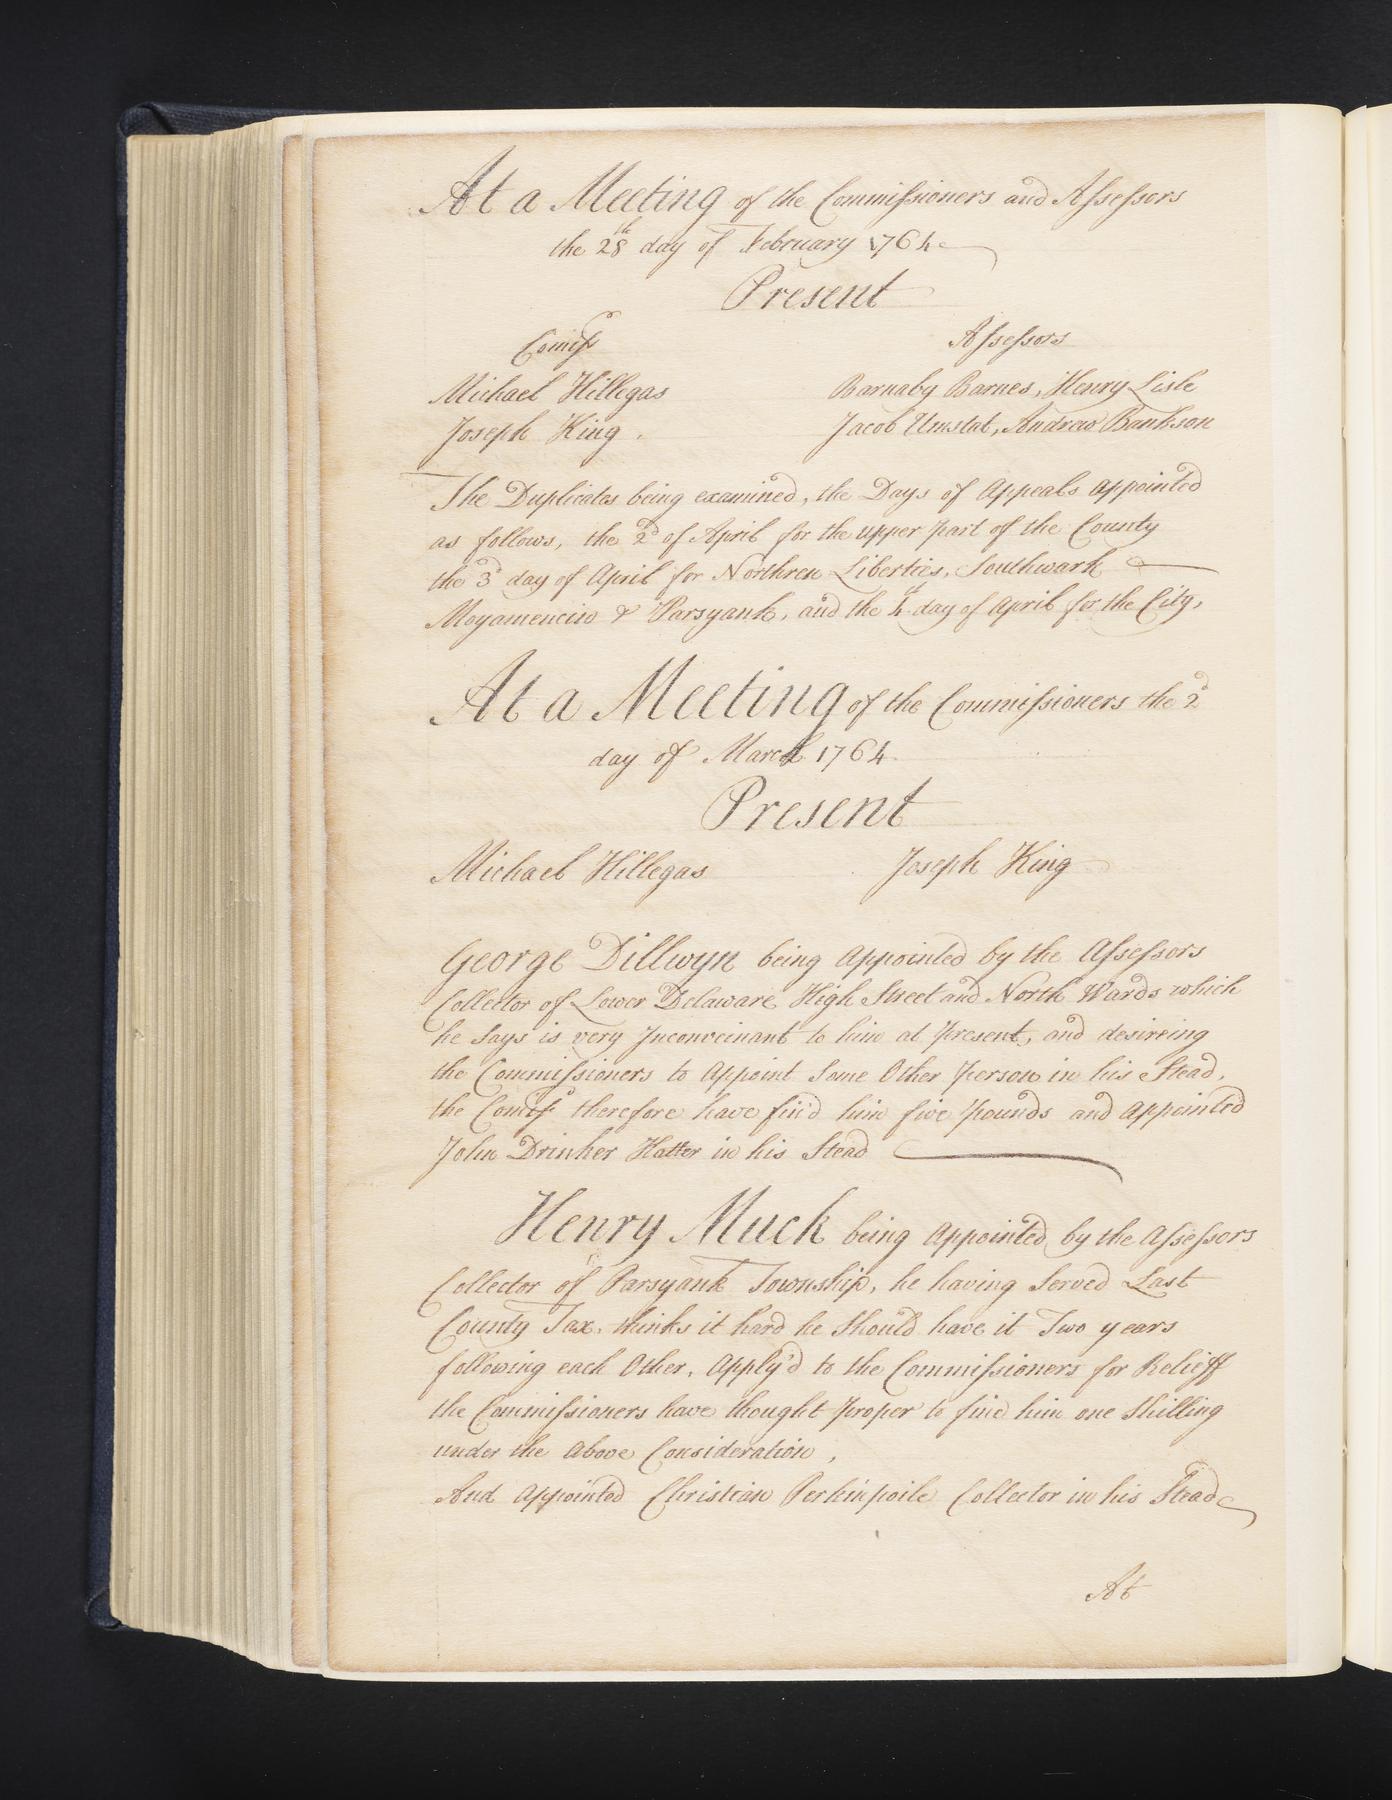 At a Meeting of the Commissioners and Assessors
the 28th day of February 1764
Present
Comissrs
Assessors
Michael Hillegas
Barnaby Barnes, Henry Lisle
Joseph King.
Jacob Umstat, Andrew Bankson
The Duplicates being examined, the Days of Appeals Appointed
as follows, the 2d of April for the upper part of the County
the 3d day of April for Northren Liberties, Southwark
Moyamencin & Parsyank, and the 4th day of April for the City,
At a Meeting of the Commissioners the 2d
day of March 1764.
Present
Michael Hillegas
Joseph King
George Dillwyn being Appointed by the Assessors
Collector of Lower Delaware High Street and North Wards which
he Says is very Inconveinant to him at Present, and desireing
the Commissioners to Appoint Some Other Person in his Stead,
the Comissrs therefore have fin'd him five Pounds and Appointed
John Drinker Hatter in his Stead
Henry Muck being Appointed by the Assessors
Collector of Parsyank Township, he having Served Last
County Tax, thinks it hard he Should have it Two years
following each Other, Apply'd to the Commissioners for Relieff
the Commissioners have thought Proper to fine him one Shilling
under the Above Consideration,
And Appointed Christian Perkinpoile Collector in his Stead
At